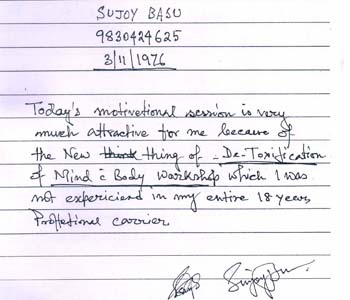 SUJOY BASU
9830424625
3/11/1976
Today's motivetional session is very
much attractive for me because of
the New think thing of - De-Toxification
of Mind & Body Workshop which I was
not expericiend in my entire 18 years
Proffetional carrier